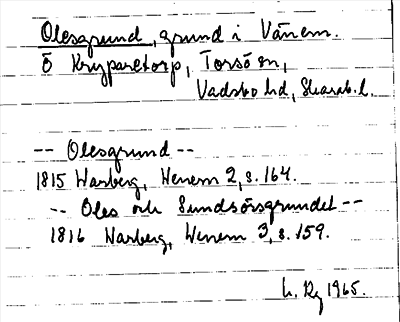 Olesgrund, grund i Vänern.
Ö Kryparetorp, Torsö sn,
Vadsbo hd, Skarab. l.
-- Olesgrund --
1815 Warberg, Wenern 2, s. 164.
-- Oles och Sundsörsgrundet --
1816 Warberg, Wenern 3, s. 159.
1965.